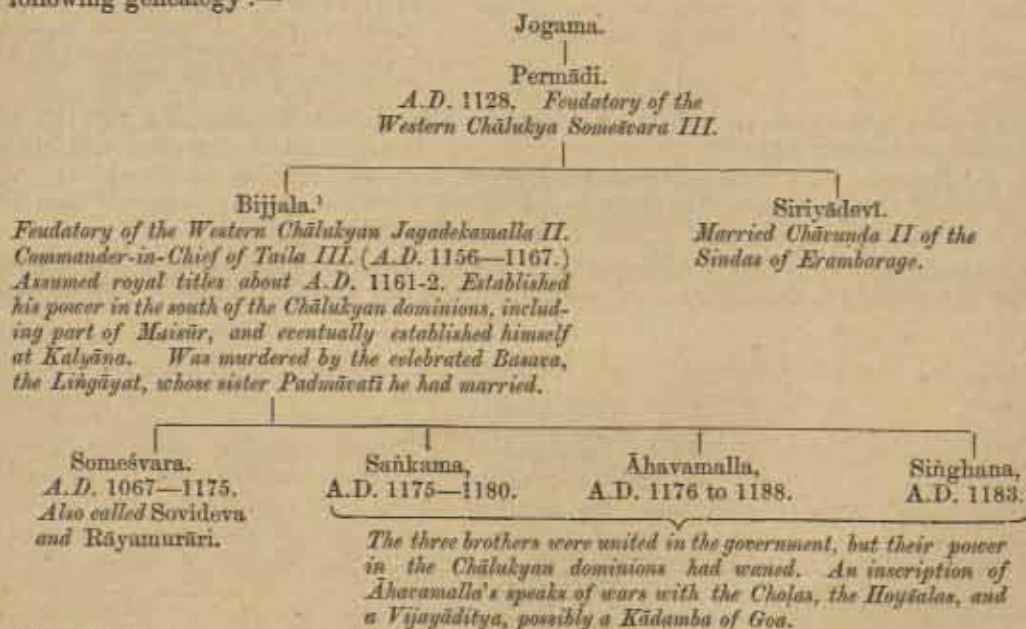 following genealogy :—
Jogama.
Permāḍi.
A.D. 1128. Feudatory of the
Western Chālukya Someśvara III.
Bijjala.¹
Feudatory of the Western Chālukyan Jagadekamalla II.
Commander-in-Chief of Taila III. (A.D. 1156—1167.)
Assumed royal titles about A.D. 1161-2. Established
his power in the south of the Chālukyan dominions, includ-
ing part of Maisūr, and eventually established himself
at Kalyāna. Was murdered by the celebrated Basava,
the Liṅgāyat, whose sister Padmāvatī he had married.
Siriyādevī.
Married Chāvuṇḍa II of the
Sindas of Erambarage.
Someśvara.
A.D. 1067—1175.
Also called Sovideva
and Rāyamurāri.
Saṅkama,
A.D. 1175—1180.
Āhavamalla,
A.D. 1176 to 1188.
Siṅghana,
A.D. 1183.
The three brothers were united in the government, but their power
in the Chālukyan dominions had waned. An inscription of
Āhavamalla's speaks of wars with the Choḷas, the Hoyśalas, and
a Vijayāditya, possibly a Kādamba of Goa.